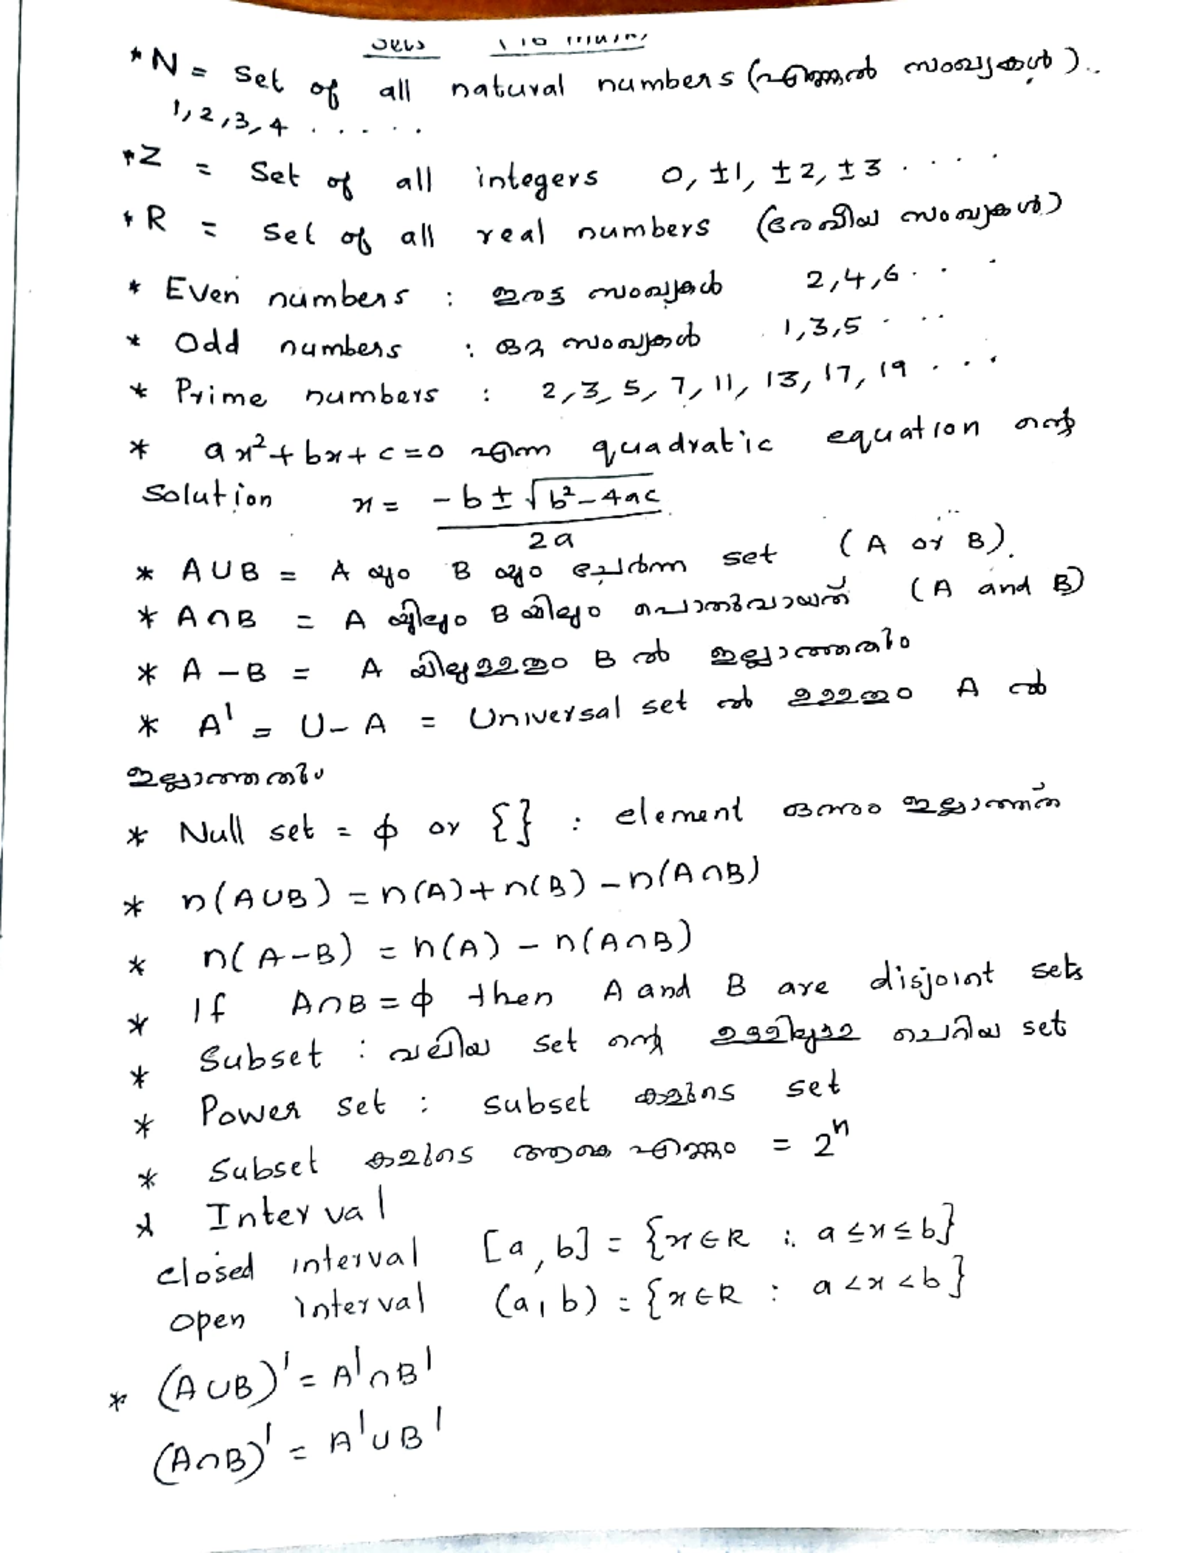 Sets
*N = Set of all natural numbers (എണ്ണൽ സംഖ്യകൾ)..
1,2,3,4 . . . . .
*Z = Set of all integers 0, ±1, ±2, ±3 . . . .
*R = Set of all real numbers (രേഖീയ സംഖ്യകൾ)
* Even numbers : ഇരട്ട സംഖ്യകൾ 2,4,6 . . .
* Odd numbers : ഒറ്റ സംഖ്യകൾ 1,3,5 . . .
* Prime numbers : 2,3,5,7,11,13,17,19 . . .
* ax²+bx+c=0 എന്ന quadratic equation ന്റെ
Solution x = -b±√b²-4ac
2a
* A∪B = A യും B യും ചേർന്ന set (A or B).
* A∩B = A യിലും B യിലും പൊതുവായത് (A and B)
* A-B = A യിലുള്ളതും B ൽ ഇല്ലാത്തതും
* A' = U-A = Universal set ൽ ഉള്ളതും A ൽ
ഇല്ലാത്തതും
* Null set = ϕ or {} : element ഒന്നും ഇല്ലാത്തത്
* n(A∪B) = n(A)+n(B)-n(A∩B)
* n(A-B) = n(A) - n(A∩B)
* If A∩B=ϕ then A and B are disjoint sets
* Subset : വലിയ set ന്റെ ഉള്ളിലുള്ള ചെറിയ set
* Power set : subset കളുടെ set
* Subset കളുടെ ആകെ എണ്ണം = 2ⁿ
* Interval
closed interval [a,b] = {x∈R : a≤x≤b}
open interval (a,b) = {x∈R : a<x<b}
* (A∪B)' = A'∩B'
(A∩B)' = A'∪B'